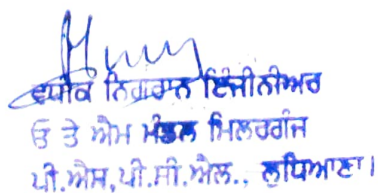 ਵਧੀਕ ਨਿਗਰਾਨ ਇੰਜੀਨੀਅਰ
ਓ ਤੇ ਐਮ ਮੰਡਲ ਮਿਲਰਗੰਜ
ਪੀ.ਐਸ.ਪੀ.ਸੀ.ਐਲ., ਲੁਧਿਆਣਾ।